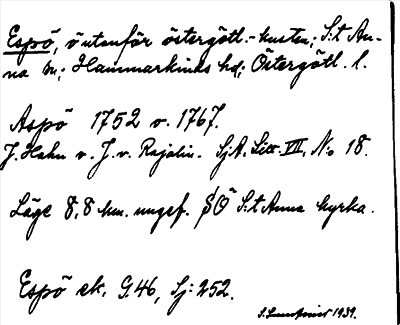 Espö, ö utanför östergötl.-kusten; S:t An-
na sn; Hammarkinds hd; Östergötl. l.
Aspö 1752 o. 1767.
J. Hahn o. J. v. Rajalin. SjA. Litt. VII, No 18.
Läge 8,8 km. ungef. SÖ S:t Anna kyrka.
Espö ek. G. 46, Sj: 252.
1939.